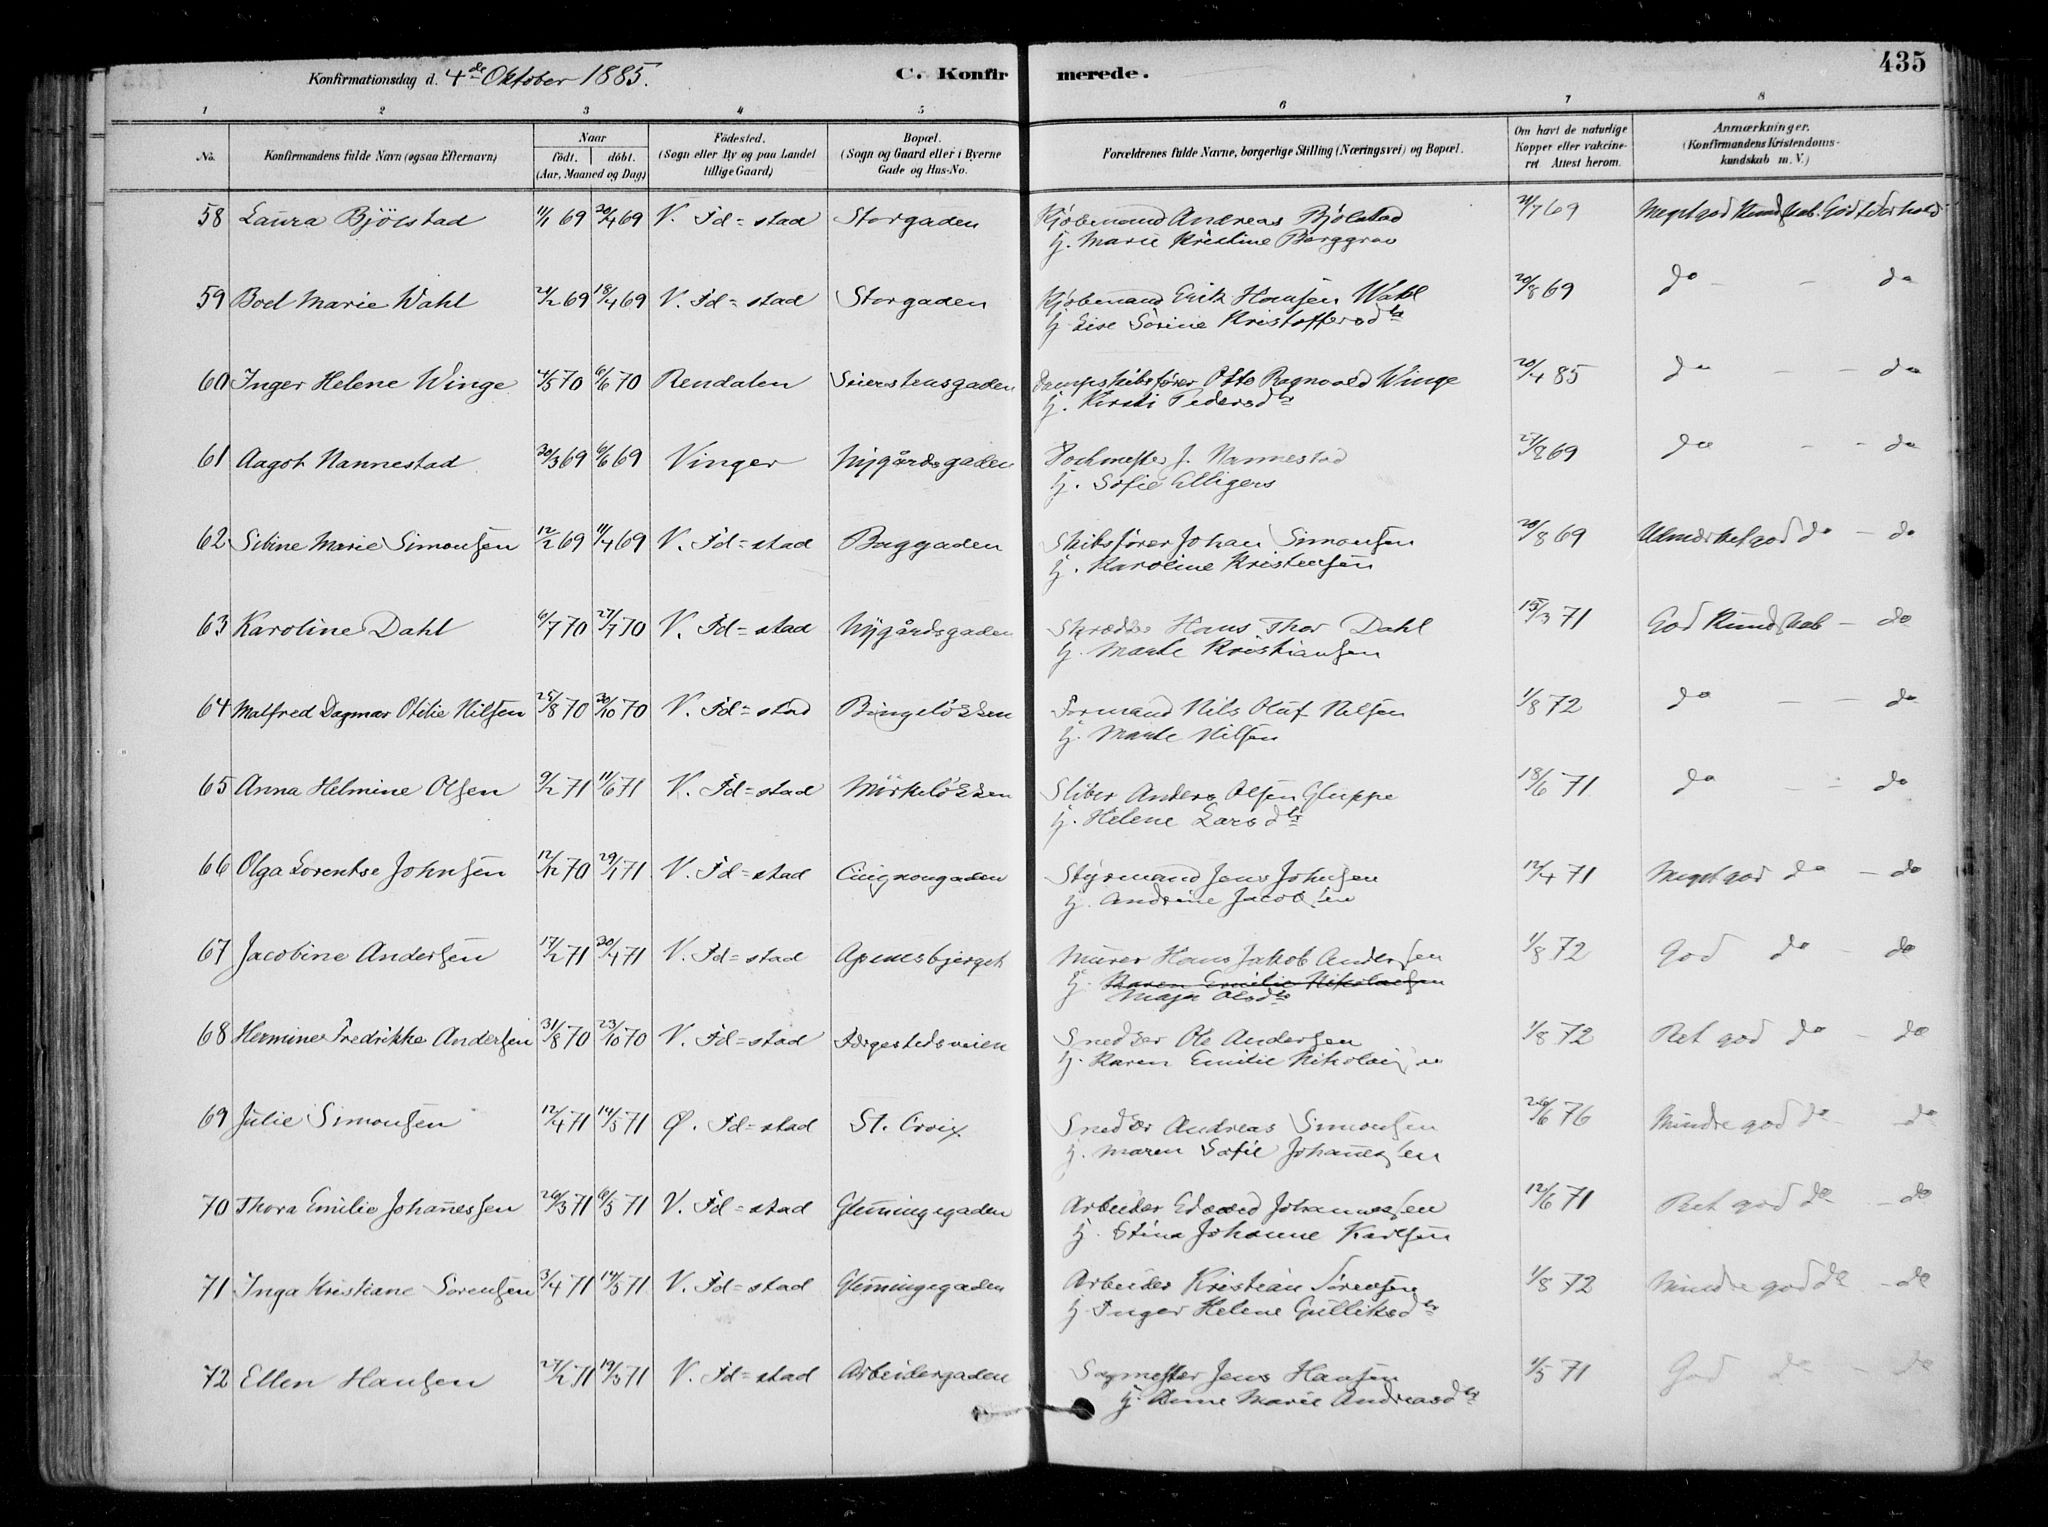 435
Konfirmationsdag d. 4de Oktober 1885.
C. Konfirmerede.
1 2 3 4 5 6 7 8
No.
Konfirmandens fulde Navn (ogsaa Efternavn)
Naar
født. døbt.
(Aar, Maaned og Dag)
Födested.
(Sogn eller By og paa Landet
tillige Gaard)
Bopæl.
(Sogn og Gaard eller i Byerne
Gade og Hus-No.
Forældrenes fulde Navne, borgerlige Stilling (Næringsvei) og Bopæl.
Om havt de naturlige
Kopper eller vakcine-
ret Attest herom.
Anmærkninger.
(Konfirmandens Kristendoms-
kundskab m. V.)
58 Laura Bjölstad 11/1 69 20/4 69 V. Fd=stad Storgaden Kjøbmand Andreas Bjölstad 21/7 69 Meget god Kundskab. God forhold
H. Marie Kristine Borggrav
59 Boel Marie Wahl 21/2 69 18/4 69 V. Fd=stad Storgaden Kjøbmand Erik Hansen Wahl 20/8 69 do - - do
H. Lise Sörine Kristoffersdtr
60 Inger Helene Winge 4/5 70 6/6 70 Rendalen Seierstensgaden Dampskibsfører Otto Ragnvald Winge 20/4 85 do - - do
H. Kirsti Pedersdtr
61 Aagot Nannestad 20/3 69 6/6 69 Vinger Nygårdsgaden J. Nannestad 69 do - - do
H. Sofie Elligers
62 Sibine Marie Simonsen 12/2 69 11/4 69 V. Fd=stad Baggaden Skibsfører Johan Simonsen 20/8 69 Udmærket god do - do
H. Karoline Kristensen
63 Karoline Dahl 6/7 70 27/7 70 V. Fd=stad Nygårdsgaden Skrædder Hans Thor Dahl 15/3 71 God Kundskab - do
H. Marte Kristiansen
64 Malfred Dagmar Otilie Nilsen 25/8 70 30/10 70 V. Fd=stad Bingeløkken Formand Nils Oluf Nilsen 1/8 72 do - - do
H. Marte Nilsen
65 Anna Helmine Olsen 9/2 71 11/6 71 V. Fd=stad Mörkeløkken Sliber Anders Olsen Gluppe 18/6 71 do - - do
H. Helene Larsdtr
66 Olga Lorentse Johnsen 12/12 70 29/1 71 V. Fd=stad Cicignongaden Styrmand Jens Johnsen 12/4 71 Meget god do - do
H. Andrine Jacobsen
67 Jacobine Andersen 17/2 71 20/4 71 V. Fd=stad Apenesbjerget Murer Hans Jakob Andersen 1/8 72 God do - do
H. Karen Emilie Nikolaisen
Maja Olsdtr
68 Hermine Fredrikke Andersen 31/8 70 23/10 70 V. Fd=stad Færgestedsveien Snedker Ole Andersen 1/8 72 Ret god do - do
H. Karen Emilie Nikolaisen
69 Julie Simonsen 12/4 71 14/5 71 Ø. Fd=stad St. Croix Snedker Andreas Simonsen 26/6 76 Mindre god do - do
H. Maren Sofie Johannesen
70 Thora Emilie Johannessen 26/3 71 6/5 71 V. Fd=stad Glemmingegaden Arbeider Edvard Johannessen 12/6 71 Ret god do - do
H. Stina Johanne Karlsen
71 Inga Kristiane Sörensen 3/4 71 14/5 71 V. Fd=stad Glemmingegaden Arbeider Kristian Sörensen 1/8 72 Mindre god do - do
H. Inger Helene Gulliksdtr
72 Ellen Hansen 27/2 71 19/3 71 V. Fd=stad Arbeidergaden Sagmester Jens Hansen 1/5 71 God do - do
H. Anne Marie Andreasdtr